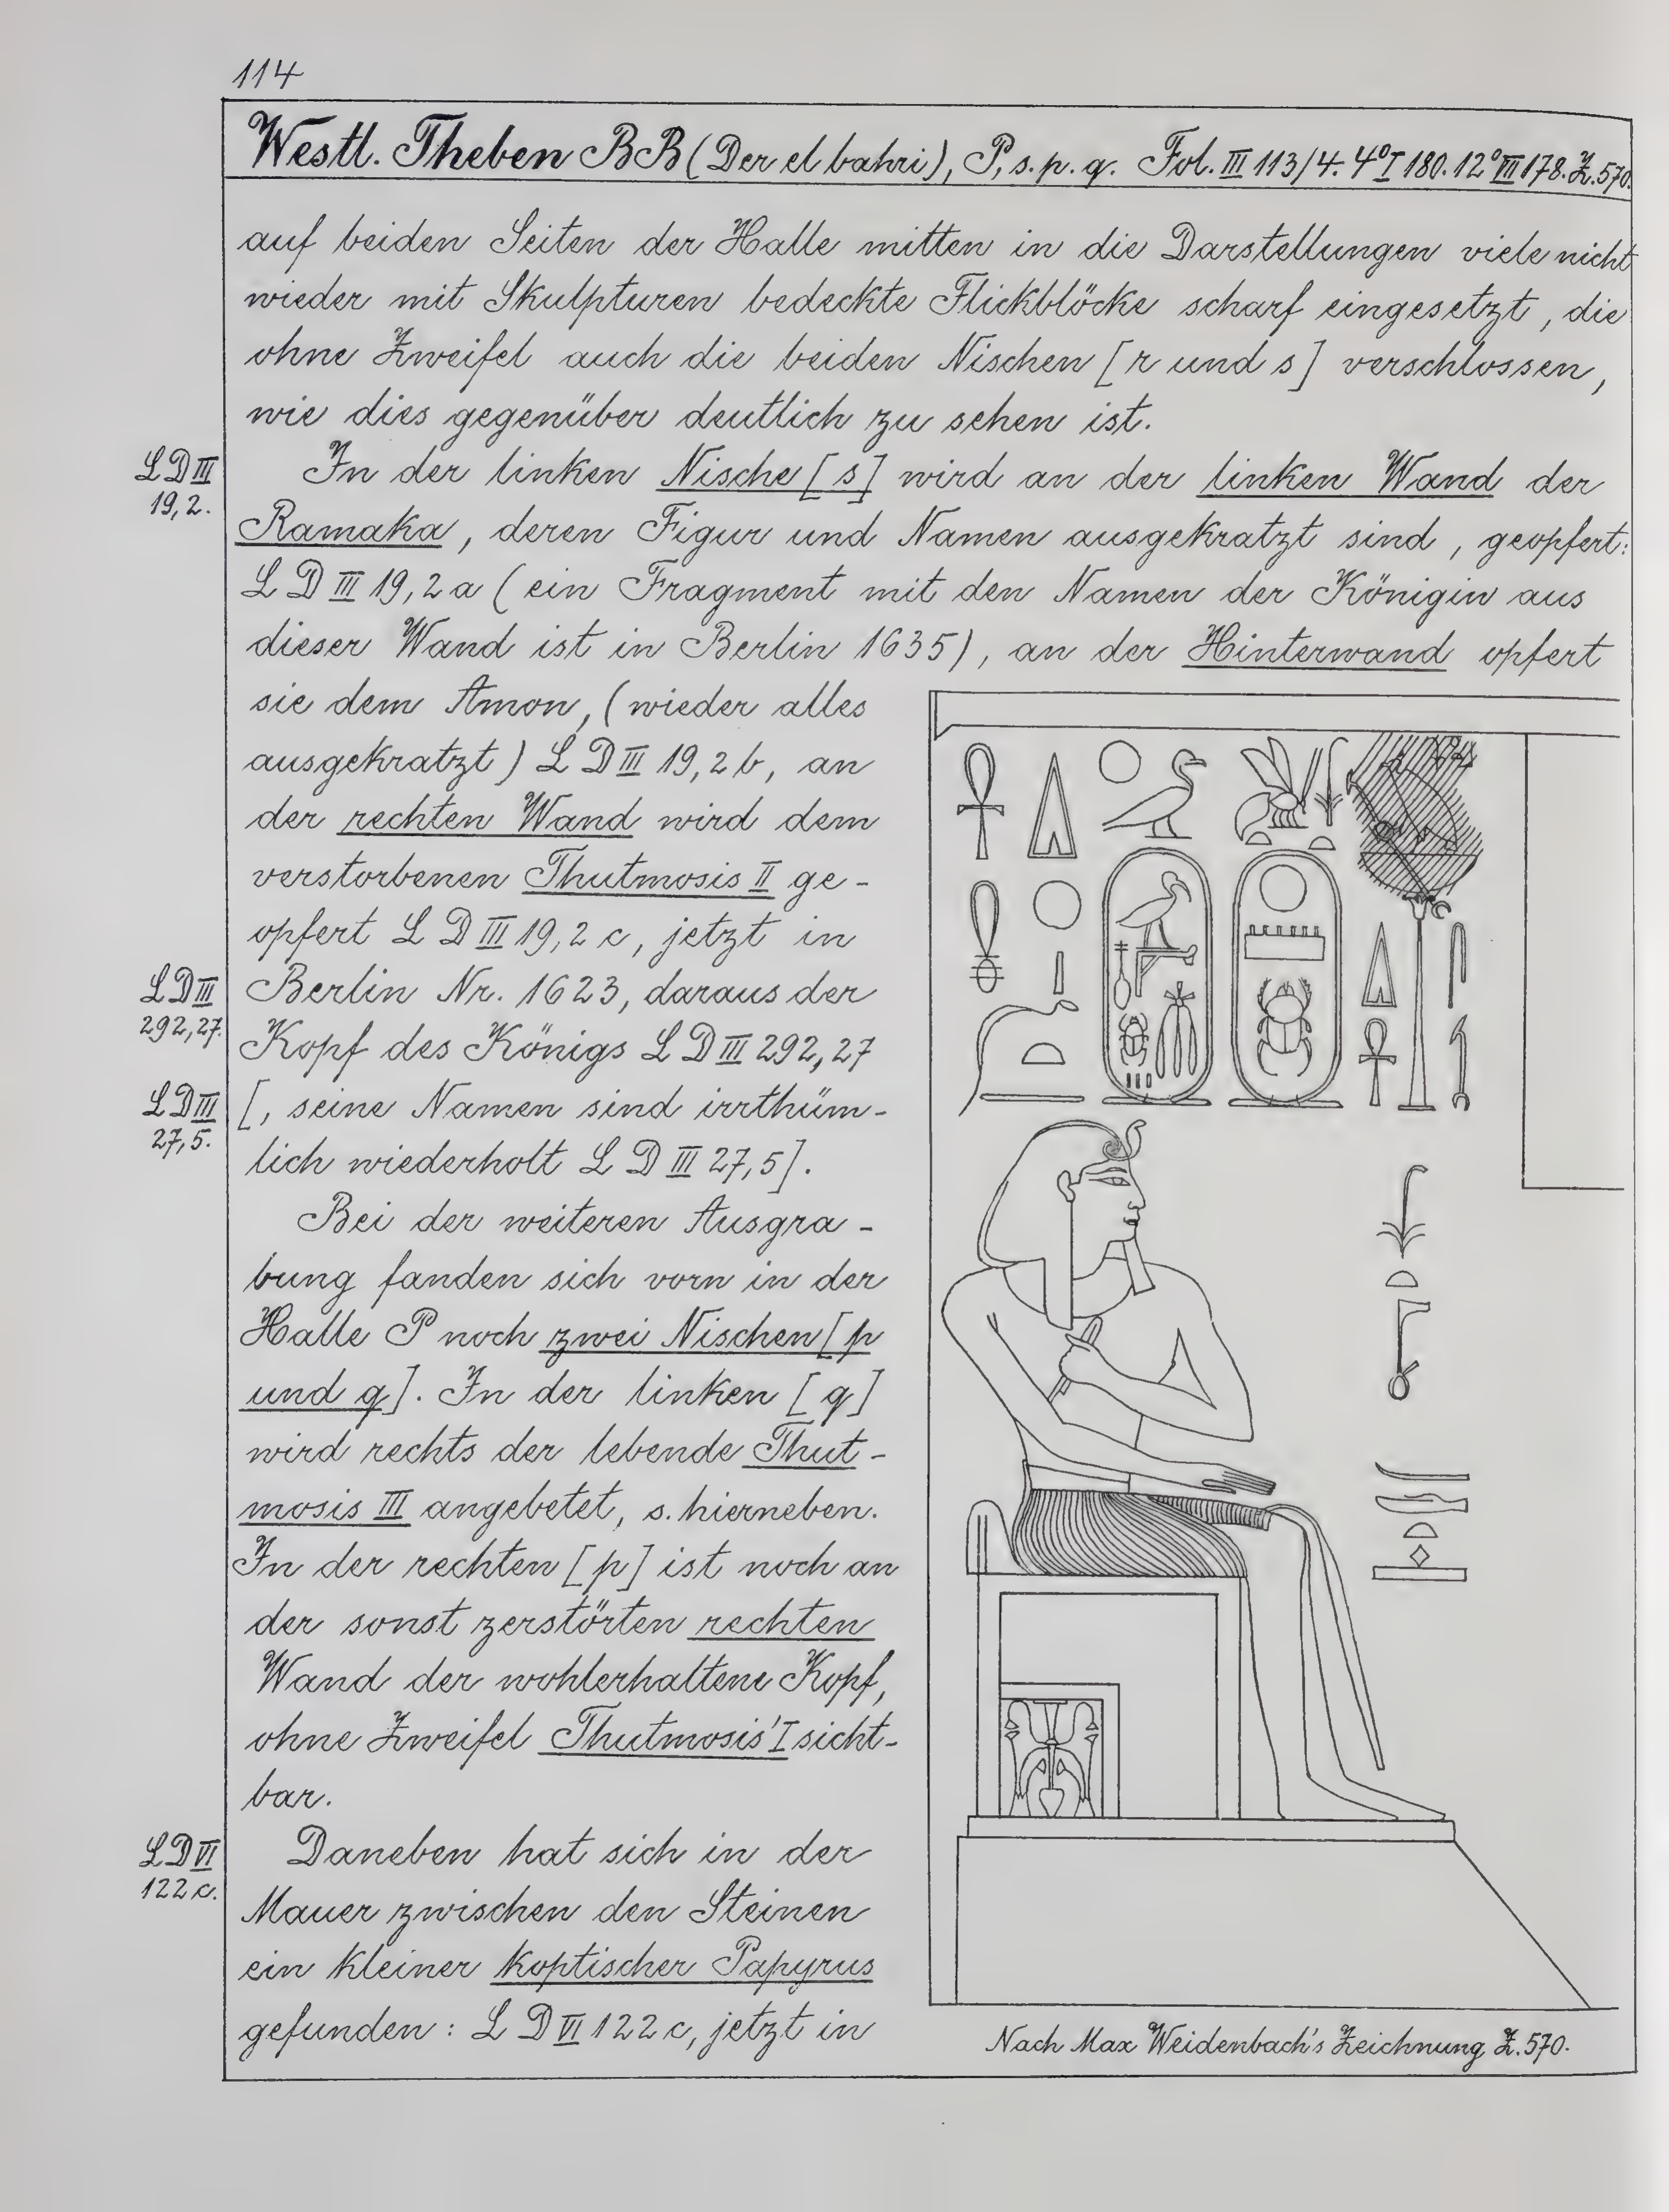 114
Westl. Theben BB (Der el bahri), P, s. p. q. Fol. III 113/4. 4° I 180. 12° VII 178. Z. 570.
auf beiden Seiten der Halle mitten in die Darstellungen viele nicht
wieder mit Skulpturen bedeckte Flickblöcke scharf eingesetzt, die
ohne Zweifel auch die beiden Nischen [r und s] verschlossen,
wie dies gegenüber deutlich zu sehen ist.
LD III
19,2.
In der linken Nische [s] wird an der linken Wand der
Ramaka, deren Figur und Namen ausgekratzt sind, geopfert:
LD III 19,2a (ein Fragment mit den Namen der Königin aus
dieser Wand ist in Berlin 1635), an der Hinterwand opfert
sie dem Amon, (wieder alles
ausgekratzt) LD III 19,2b, an
der rechten Wand wird dem
verstorbenen Thutmosis II ge-
opfert LD III 19,2c, jetzt in
LD III
292,27.
Berlin Nr. 1623, daraus der
Kopf des Königs LD III 292,27
LD III
27,5.
[, seine Namen sind irrthüm-
lich wiederholt LD III 27,5].
Bei der weiteren Ausgra-
bung fanden sich vorn in der
Halle P noch zwei Nischen [p
und q]. In der linken [q]
wird rechts der lebende Thut-
mosis III angebetet, s. hierneben.
In der rechten [p] ist noch an
der sonst zerstörten rechten
Wand der wohlerhaltene Kopf,
ohne Zweifel Thutmosis' I sicht-
bar.
LD VI
122c.
Daneben hat sich in der
Mauer zwischen den Steinen
ein kleiner koptischer Papyrus
gefunden: LD VI 122c, jetzt in
Nach Max Weidenbach's Zeichnung Z. 570.